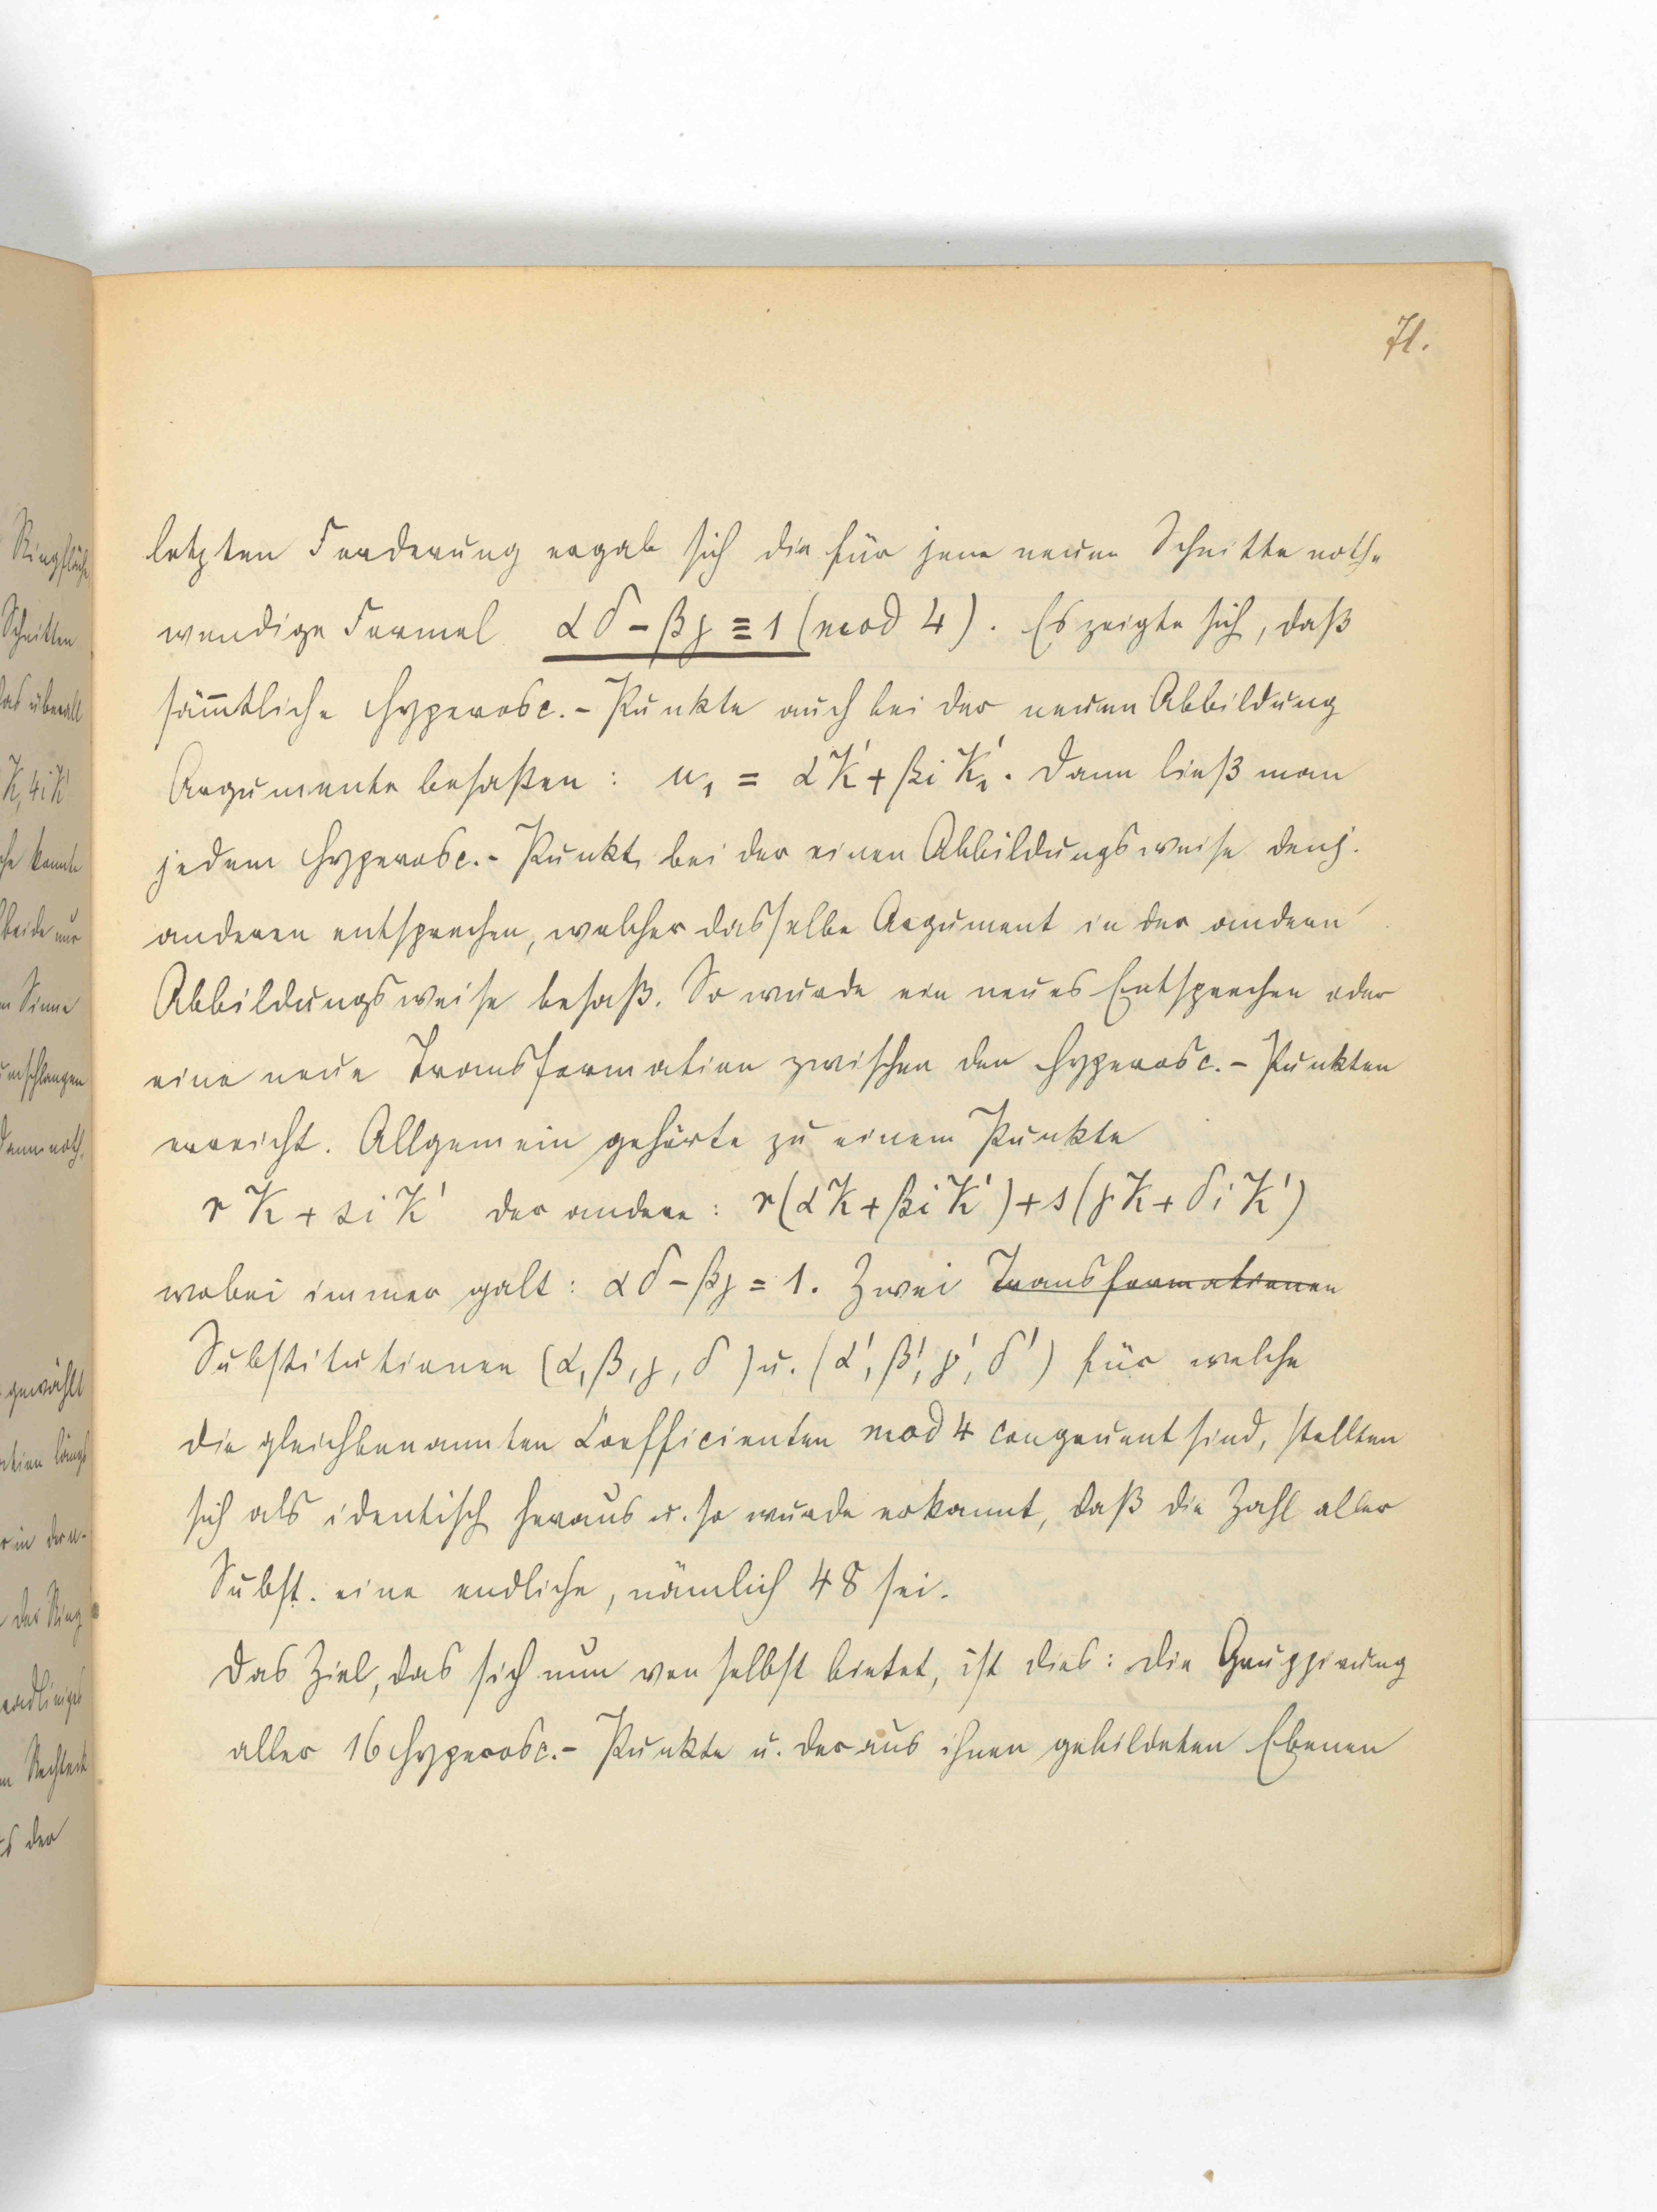 71.
letzten Forderung ergab sich die für jene neuen Schnitte noth-
wendige Formel αδ - βγ ≡ 1 (mod 4). Es zeigte sich, daß
sämmtliche Hyperosc.- Punkte auch bei der neuen Abbildung
Argumente besaßen: u₁ = αK' + βiK'₂. Dann ließ man
jedem Hyperosc.- Punkt bei der einen Abbildungsweise denj.
anderen entsprechen, welcher dasselbe Argument in der andern
Abbildungsweise besaß. So wurde ein neues Entsprechen oder
eine neue Transformation zwischen den Hyperosc. - Punkten
erreicht. Allgemein gehörte zu einem Punkte
rK + siK' der andere: r(αK + βiK') + s(γK + δiK')
wobei immer galt: αδ - βγ = 1. Zwei Transformationen
Substitutionen (α, β, γ, δ) u. (α', β', γ', δ') für welche
die gleichbenannten Coefficienten mod 4 congruent sind, stellten
sich als identisch heraus u. so wurde erkannt, daß die Zahl aller
Subst. eine endliche, nämlich 48 sei.
Das Ziel, das sich nun von selbst bietet, ist dies: die Gruppirung
aller 16 Hyperosc.- Punkte u. der aus ihnen gebildeten Ebenen
Schnitten
das überall
K, 4iK'
konnte
beide nur
Sinne
umschlungen
dann noth.
gewählt
längs
der Ring
Rechteck
der